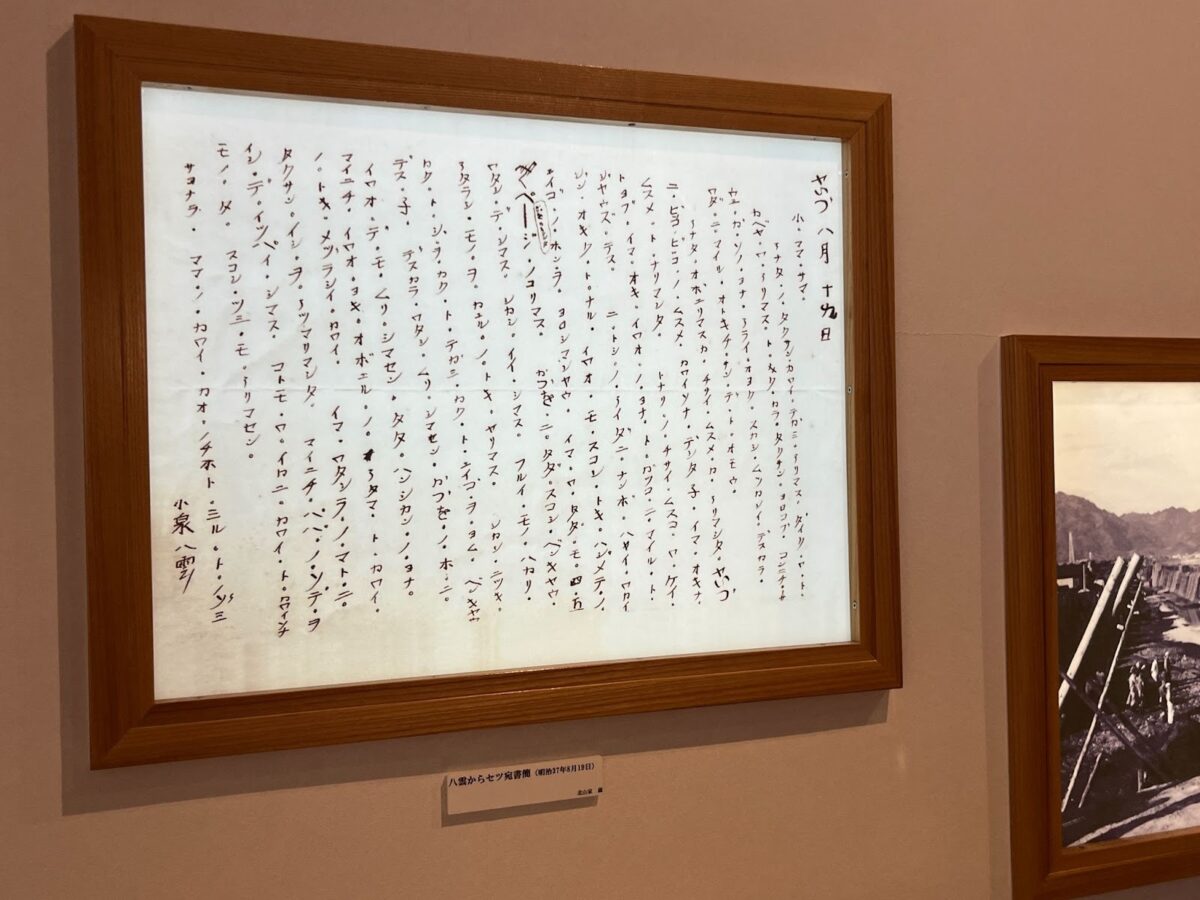 やいづ 八月 十九日
小・ママ・サマ・
アナタ・ノ・タクサン・カワイ・テガミ・アリマス・ダイク・ヤ・ト・
カベヤ・ヤ・アリマス・ト・キク・カラ・タクサン・ヨロコブ・コンニチ・ヨ
ウ・ガ・ソノ・ヨナ・アライ・オヨク・スカシ・ムツカシイ・デスカラ・
ワダ・ニ・マイル・オトキチ・サン・デ・ト・オモウ・
アナタ・オボエリマスカ・チサイ・ムスメ・カ・アリマシタ・やいづ
ニ・ビヨ・ビヨ・ノ・ムスメ・カワイソナ・デシタ 子・イマ・オキナ・
ムスメ・ト・ナリマシタ・ トナリ・ノ・チサイ・ムスコ・ワ・ケイ・
トヨブ・イマ・オキ・イワオ・ノ・ヨナ・ト・ガツコ・ニ・マイル・ト・
ジヤウズ・デス・ ニ・トシ・ノ・アイダ・ニ・ナンボ・ハヤイ・ワカイ
ジン・オキク・ト・ナル・イワオ・モ・スコシ・トキ・ハジメテ・ノ・
エイゴ・ノ・ホン・ヲ・ヨロシマシヤウ・イマ・ワ・タダ・モ・四・五
ページ・ノコリマス・ かづを・ニ・タダ・スコシ・ベンキヤウ・
ワタシ・デ・シマス・シカシ・イイ・シマス・フルイ・モノ・バカリ・
アタラシ・モノ・ヲ・カエル・ノ・トキ・ヤリマス・ シカシ・ニツキ・
カク・ト・ジ・ヲ・カク・ト・テガミ・カク・ト・エイゴ・ヲ・ヨム・ベンキヤウ
デス・子・ デスカラ・ワタシ・ムリ・シマセン・かづを・ノ・ホ・ニ・
イワオ・デ・モ・ムリ・シマセン・タダ・ハンジカン・ノ・ヨナ・
マイニチ・イワオ・ヨキ・オボエル・ノ・アタマ・ト・カワイ・
ノ・トキ・メヅラシイ・カワイ・ イマ・ワタシラ・ノ・マト・ニ・
タクサン・イシ・ヲ・アツマリマシタ・マイニチ・パパ・ノ・ソデ・ヲ
イシ・デ・イツパイ・シマス・ コトモ・ワ・イカニ・カワイ・ト・カワイシナ
モノ・ダ・ スコシ・ツミ・モ・アリマセン。
サヨナラ・ ママ・ノ・カワイ・カオ・ノチホト・ミル・ト・ノゾミ
小泉八雲
八雲からセツ宛書簡（明治37年8月19日）
北山家 蔵